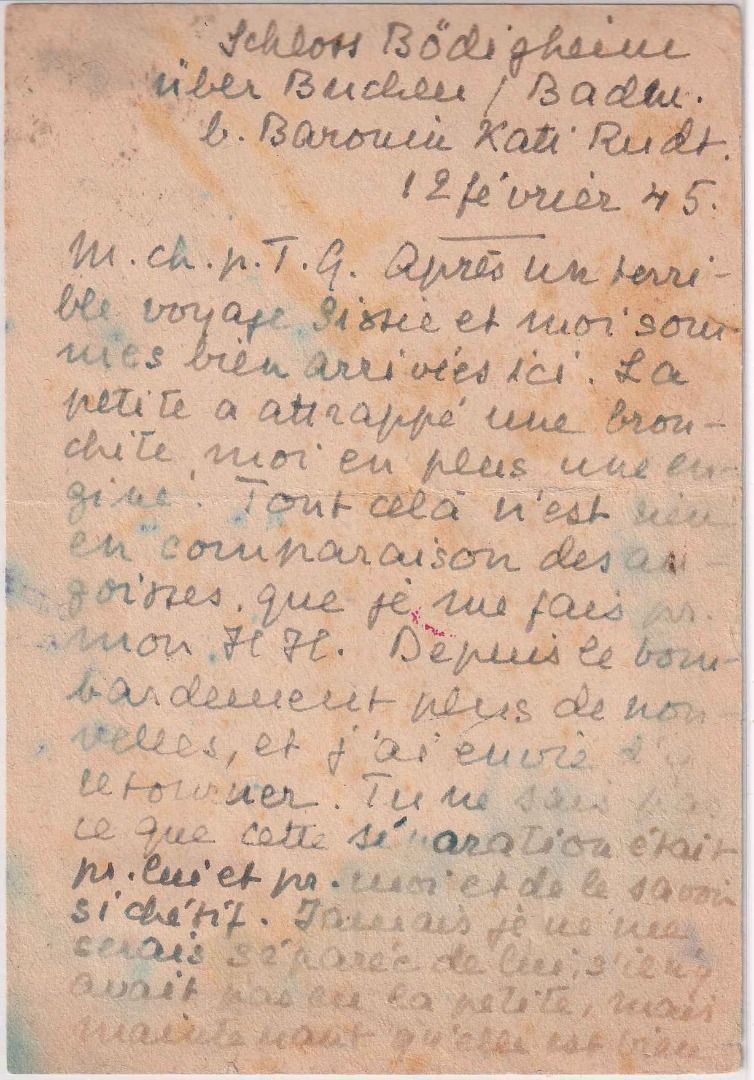 Schloss Bödigheim
über Buchen / Baden.
b. Baronin Kati Rüdt.
12 février 45.
M. ch. p. T. G. Après un terri-
ble voyage Sissie et moi som-
mes bien arrivées ici. La
petite a attrappé une bron-
chite, moi en plus une en-
gine. Tout celà n'est rien
en comparaison des an-
goisses, que je me fais pr.
mon H H. Depuis le bom-
bardement plus de nou-
velles, et j'ai envie d'y
retourner. Tu ne sais pas
ce que cette séparation était
pr. lui et pr. moi et de le savoir
si chétif. Jamais je ne me
serais séparée de lui, s'il n'y
avait pas eu la petite, mais
maintenant qu'elle est bien